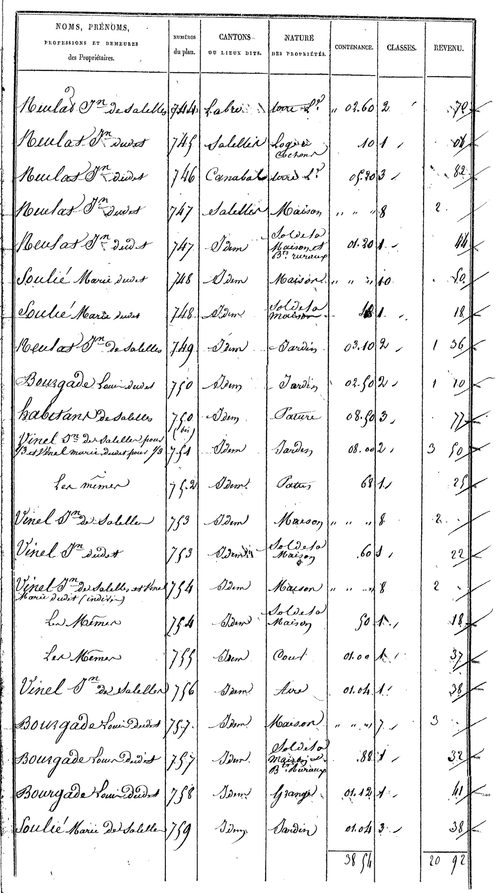 NOMS, PRÉNOMS, PROFESSIONS ET DEMEURES des Propriétaires. | NUMÉROS du plan. | CANTONS OU LIEUX DITS. | NATURE DES PROPRIÉTÉS. | CONTENANCE. | CLASSES. | REVENU.
Neulat Jn de Salelles 744 Labre terre Lle 02.60 2 72
Neulat Jn dudit 745 Salelles Loge à Cochons 10 1 08
Neulat Jn dudit 746 Canabal terre Lle 05.20 3 82
Neulat Jn dudit 747 Salelles Maison " " " 8 2
Neulat Jn dudit 747 Idem Sol de la Maison et Bn ruraux 01.20 1 44
Soulié Marie dudit 748 Idem Maison " " " 10 50
Soulié Marie dudit 748 Idem Sol de la maison 48 1 18
Neulat Jn de Salelles 749 Idem Jardin 03.10 2 1 36
Bourgade Louis dudit 750 Idem Jardin 02.50 2 1 10
habitans de Salelles 750 (bis) Idem Pature 08.50 3 77
Vinel Jn de Salelles pour
2/3 et Vinel marie dudit pour 1/3 751 Idem Jardin 08.00 2 3 50
Les mêmes 752 Idem Patus 68 1 25
Vinel Jn de Salelles 753 Idem Maison " " " 8 2
Vinel Jn dudit 753 Idem Sol de la Maison 60 1 22
Vinel Jn de Salelles et Vinel
Marie dudit (indivis) 754 Idem Maison " " " 8 2
Les Mêmes 754 Idem Sol de la Maison 50 1 18
Les Mêmes 755 Idem Cour 01.00 1 37
Vinel Jn de Salelles 756 Idem Aire 01.04 1 38
Bourgade Louis dudit 757 Idem Maison " " " 7 3
Bourgade Louis dudit 757 Idem Sol de la maison et Bn Ruraux 88 1 32
Bourgade Louis dudit 758 Idem Grange 01.12 1 41
Soulié Marie de Salelles 759 Idem Jardin 01.04 3 38
38 54 20 92